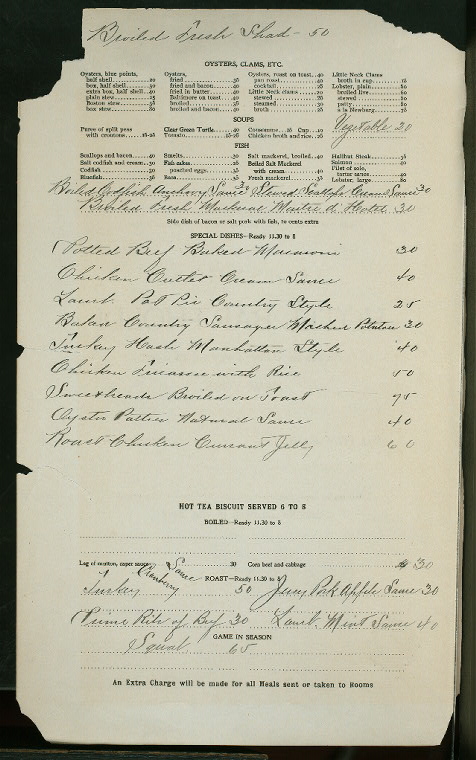 Broiled Fresh Shad - 50
OYSTERS, CLAMS, ETC.
Oysters, blue points,
half shell 20
box, half shell 30
extra box, half shell 40
plain stew 25
Boston stew
box stew
Oysters,
fried
fried and bacon 40
fried in butter 40
Baltimore on toast 40
broiled
broiled and bacon
Oysters, roast on toast 40
pan roast 40
cocktail
Little Neck clams 20
stewed
steamed 30
broth
Little Neck Clams
broth in cup
Lobster, plain
broiled live
stewed
patty
a la Newberg
SOUPS
Puree of split peas
with croutons 15-25
Clear Green Turtle 40
Tomato 15-25
Consomme Cup 10
Chicken broth and rice
Vegetable 20
FISH
Scallops and bacon
Salt codfish and cream 30
Codfish
Bluefish
Smelts
Fish cakes
poached eggs
Bass
Salt mackerel, broiled 40
Boiled Salt Mackerel
with cream 40
Fresh mackerel
Halibut Steak
Salmon
Filet of sole,
tartar sauce
Lobster, large
Boiled Codfish Anchovy Sauce 30 Stewed Scallops Cream Sauce 30
Broiled Fresh Mackerel Maitre d' Hotel 30
Side dish of bacon or salt pork with fish, 10 cents extra
SPECIAL DISHES—Ready 11.30 to 8
Potted Beef Baked Macaroni 30
Chicken Cutlet Cream Sauce 40
Lamb Pot Pie Country Style 25
Country Sausages Mashed Potatoes 30
Turkey Hash Manhattan Style 40
Chicken Fricassee with Rice 50
Sweetbreads Broiled on Toast 75
Oyster Patties Natural Sauce 40
Roast Chicken Currant Jelly 60
HOT TEA BISCUIT SERVED 6 TO 8
BOILED—Ready 11.30 to 8
Leg of mutton, caper sauce 30 Corn beef and cabbage 30
ROAST—Ready 11.30 to 8
Turkey Cranberry Sauce 50 Jersey Pork Apple Sauce 30
Prime Ribs of Beef 30 Lamb Mint Sauce 40
GAME IN SEASON
Squab 65
An Extra Charge will be made for all Meals sent or taken to Rooms